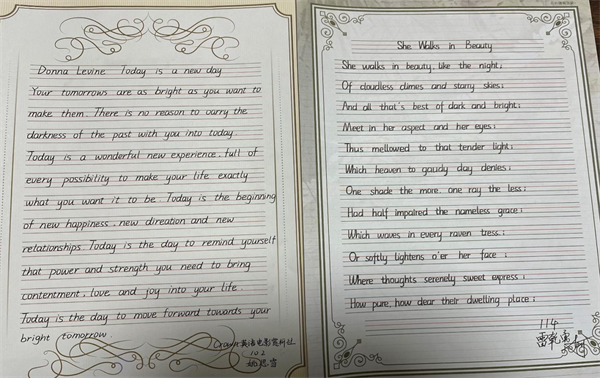 Donna Levine Today is a new day
Your tomorrows are as bright as you want to
make them. There is no reason to carry the
darkness of the past with you into today.
Today is a wonderful new experience, full of
every possibility to make your life exactly
what you want it to be. Today is the beginning
of new happiness, new direation and new
relationships. Today is the day to remind yourself
that power and strength you need to bring
contentment, love and joy into your life.
Today is the day to move forward towards your
bright tomorrow.
英语电影赏析社
102
She Walks in Beauty
She walks in beauty, like the night;
Of cloudless climes and starry skies;
And all that's best of dark and bright;
Meet in her aspect and her eyes;
Thus mellowed to that tender light;
Which heaven to gaudy day denies;
One shade the more, one ray the less;
Had half impaired the nameless grace;
Which waves in every raven tress;
Or softly lightens o'er her face ;
Where thoughts serenely sweet express ;
How pure, how dear their dwelling place ;
114